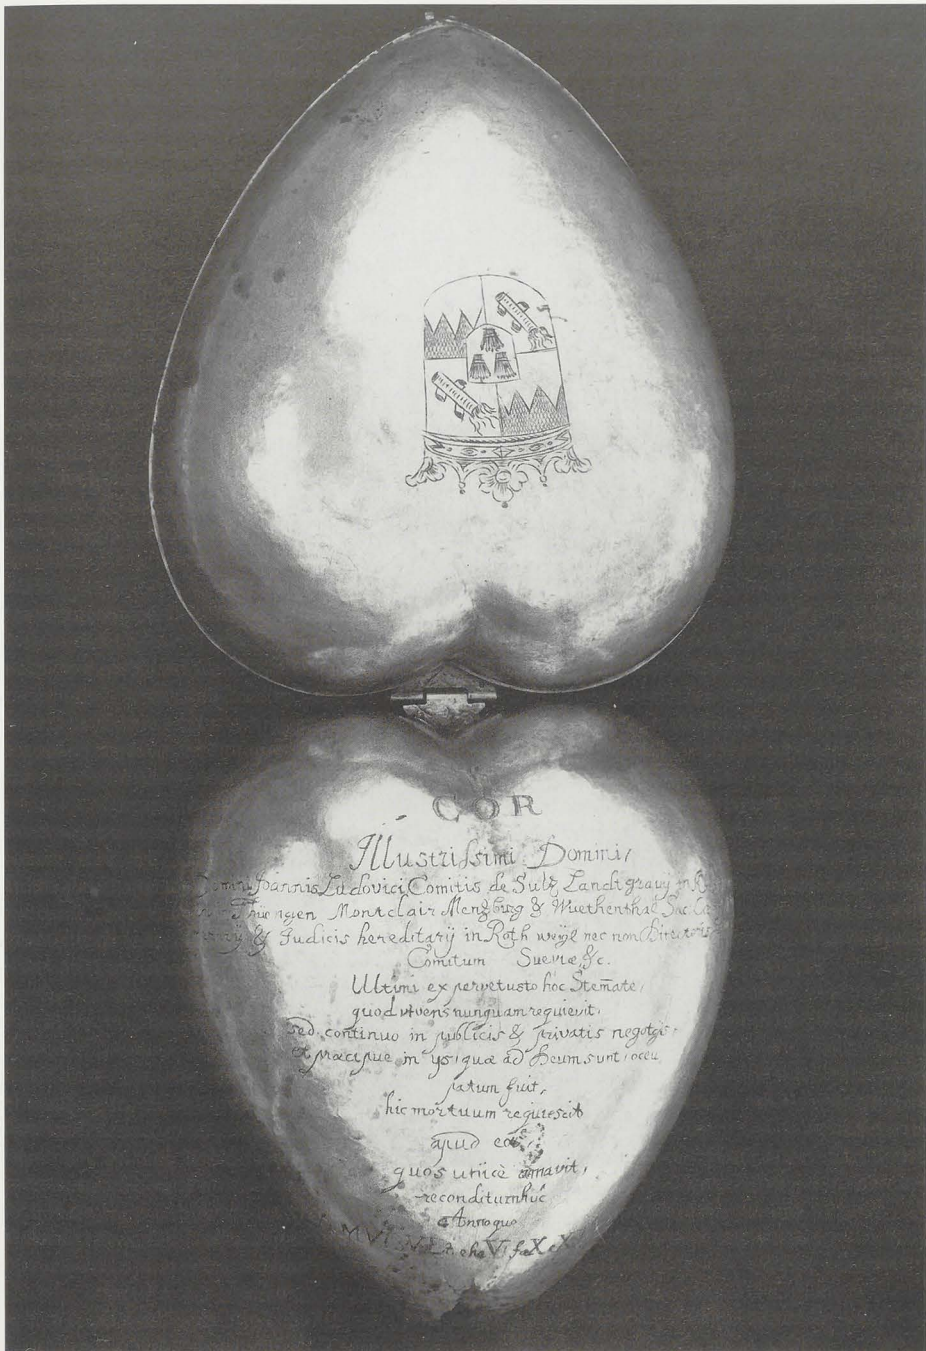 COR
Illustrissimi Domini,
Joannis Ludovici Comitis de Sulz Landtgravy in
Montclair Menzburg & Wuethenthal Sac.
& Judicis hereditarÿ in Rothweÿl nec non Directoris
Comitum Sueviæ, &c.
Ultimi ex pervetusto hoc Stem̄ate,
quod vivens nunquam requievit,
sed continuo in publicis & privatis negotÿs,
et præcipue in ÿs, quæ ad Deum sunt, occu
patum fuit,
hic mortuum requiescit
apud eos,
quos unicè amavit,
reconditum hùc
Anno quo